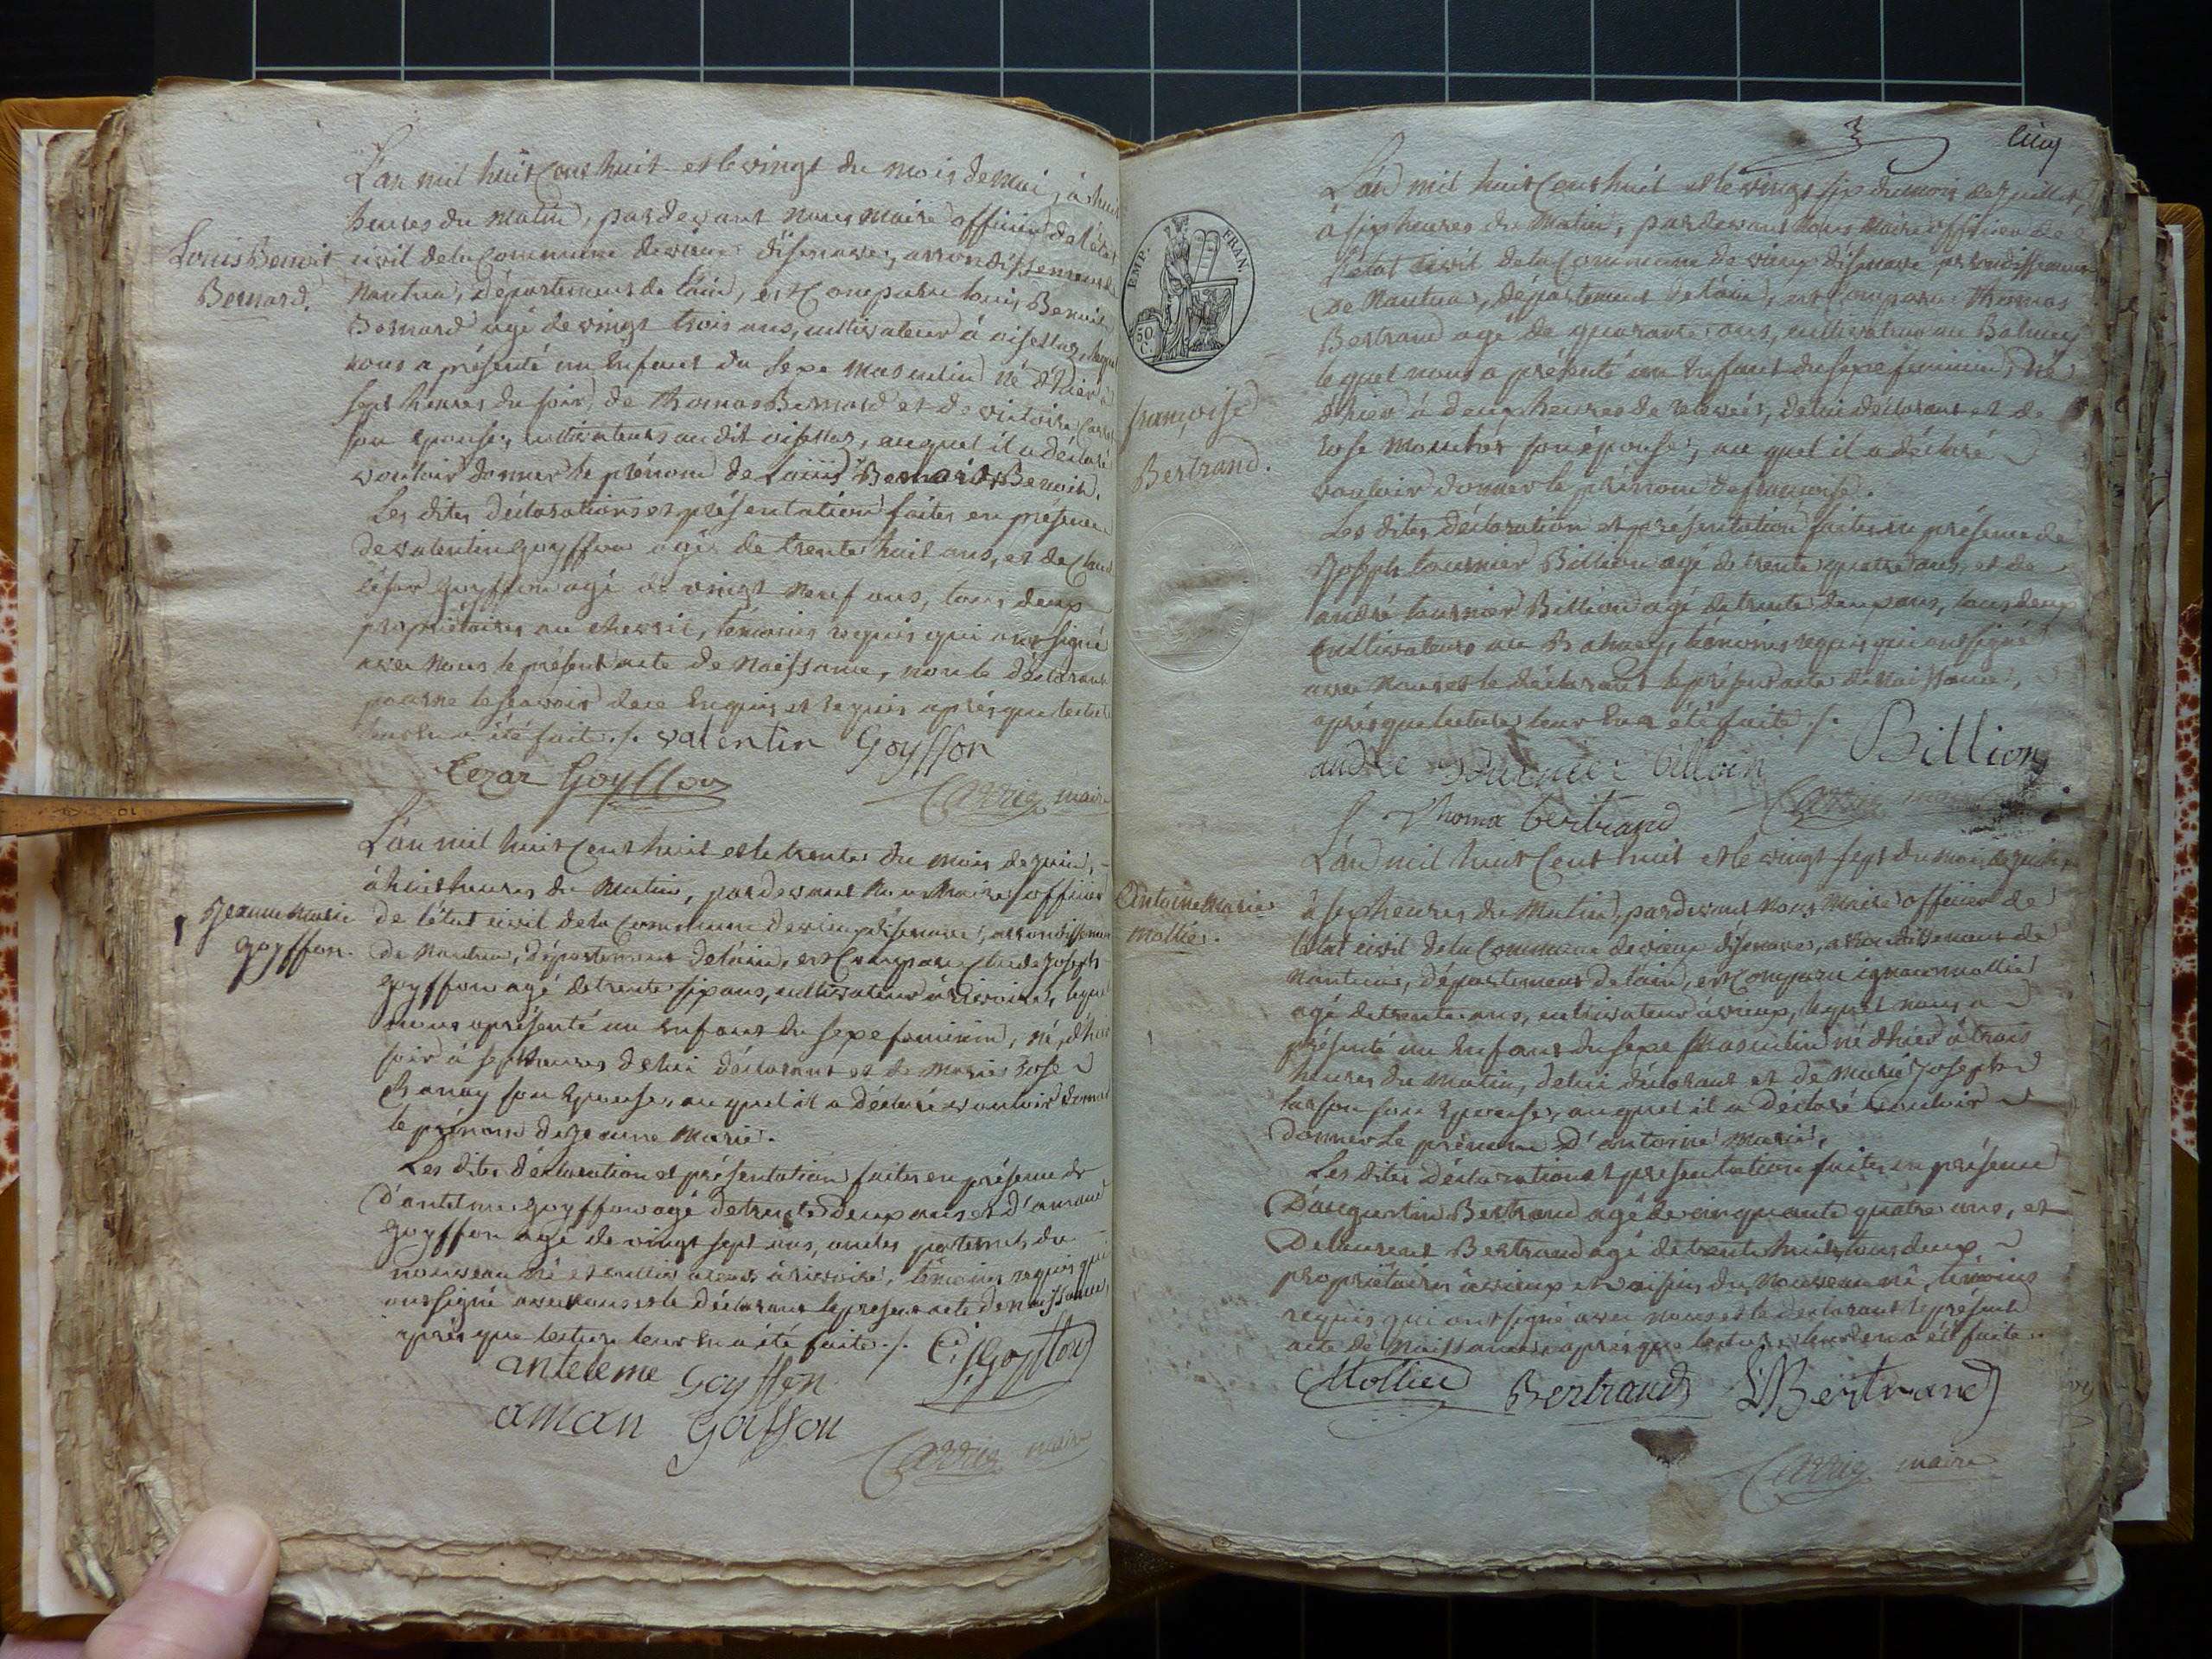 Louis Benoit
Bernard.
L'an mil huit Cent huit et le vingt du mois de mai, à huit
heures du matin, pardevant nous maire officier de l'état
civil de la Commune de vieux d'isenave, arrondissement de
Nantua, département de l'ain, est Comparu louis Benoit
Bernard agé de vingt trois ans, cultivateur à oisellas, lequel
nous a présenté un Enfant du Sexe masculin né d'hier à
sept heures du soir, de thomas Bernard et de victoire
son Epouse, cultivateurs au dit oisellas, auquel il a déclaré
vouloir donner le prénom de Louis Benoit.
Les dites déclarations et présentation faites en présence
de valentin Goyffon agé de trente huit ans, et de
César Goyffon agé de vingt neuf ans, tous deux
propriétaires au chevril, témoins requis qui ont signé
avec nous le présent acte de naissance, non le déclarant
pour ne le scavoir de ce Enquis et requis après que lecture
leur en a été faite ./. valentin Goyffon
Cezar Goyffon
Carrier maire
Jeanne Marie
goyffon.
L'an mil huit Cent huit et le trente du mois de juin,
à huit heures du Matin, pardevant Nous Maire officier
de l'état civil de la Commune de vieux d'isenave, arrondissement
de Nantua, département de l'ain, est Comparu Claude Joseph
goyffon agé de trente six ans, cultivateur à rivoire, lequel
nous a présenté un Enfant du sexe feminin, né, d'hier
soir à sept heures de lui déclarant et de Marie Rose
Chanay son Epouse, auquel il a déclaré vouloir donner
le prénom de Jeanne Marie.
Les dites déclaration et présentation faites en présence de
D'antelme goyffon agé de trente deux ans et d'amand
goyffon agé de vingt sept ans, oncles paternels du
nouveau né et cultivateurs à rivoire, témoins requis qui
ont signé avec nous et le déclarant le present acte de naissance,
après que lecture leur en a été faite ./. C. J. Goyffon
anteleme Goyffon
aman Goiffon
Carrier maire
cinq
EMP. FRAN.
50 C.
françoise
Bertrand.
L'an mil huit Cent huit et le vingt six du mois de juillet,
à six heures du Matin, pardevant Nous Maire officier de
l'état civil de la Commune de vieux d'isenave arrondissement
de Nantua, département de l'ain, est Comparu thomas
Bertrand agé de quarante ans, cultivateur au Balmey
lequel nous a présenté un Enfant du sexe feminin, né
d'hier à deux heures de relevée, de lui déclarant et de
rose son épouse, au quel il a déclaré
vouloir donner le prénom de françoise.
Les dites déclaration et présentation faites en présence de
Joseph tournier Billion agé de trente quatre ans, et de
andré tournier Billion agé de trente deux ans, tous deux
Cultivateurs au Balmey, témoins requis qui ont signé
avec Nous et le déclarant le présent acte de naissance,
après que lecture leur En a été faite ./.
Billion
andre tournier billion
Thoma bertrand
Carrier maire
Antoine Marie
Mollie.
L'an mil huit Cent huit et le vingt sept du mois de juillet
à sept heures du Matin, pardevant Nous Maire officier de
l'état civil de la Commune de vieux d'isenave, arrondissement de
Nantua, département de l'ain, est Comparu ignace mollie
agé de trente ans, cultivateur à vieux, lequel nous a
présenté un Enfant du sexe Masculin né d'hier à trois
heures du Matin, de lui déclarant et de marie Joseph
son Epouse, auquel il a déclaré vouloir
donner le prénom d'antoine Marie,
Les dites déclaration et presentation faites en présence
D'augustin Bertrand agé de cinquante quatre ans, et
De laurent Bertrand agé de trente huit, tous deux
propriétaires à vieux et voisins du nouveau né, témoins
requis qui ont signé avec nous et le déclarant le présent
acte de Naissance, après que lecture leur en a été faite.
Mollie Bertrand L Bertrand
Carrier maire